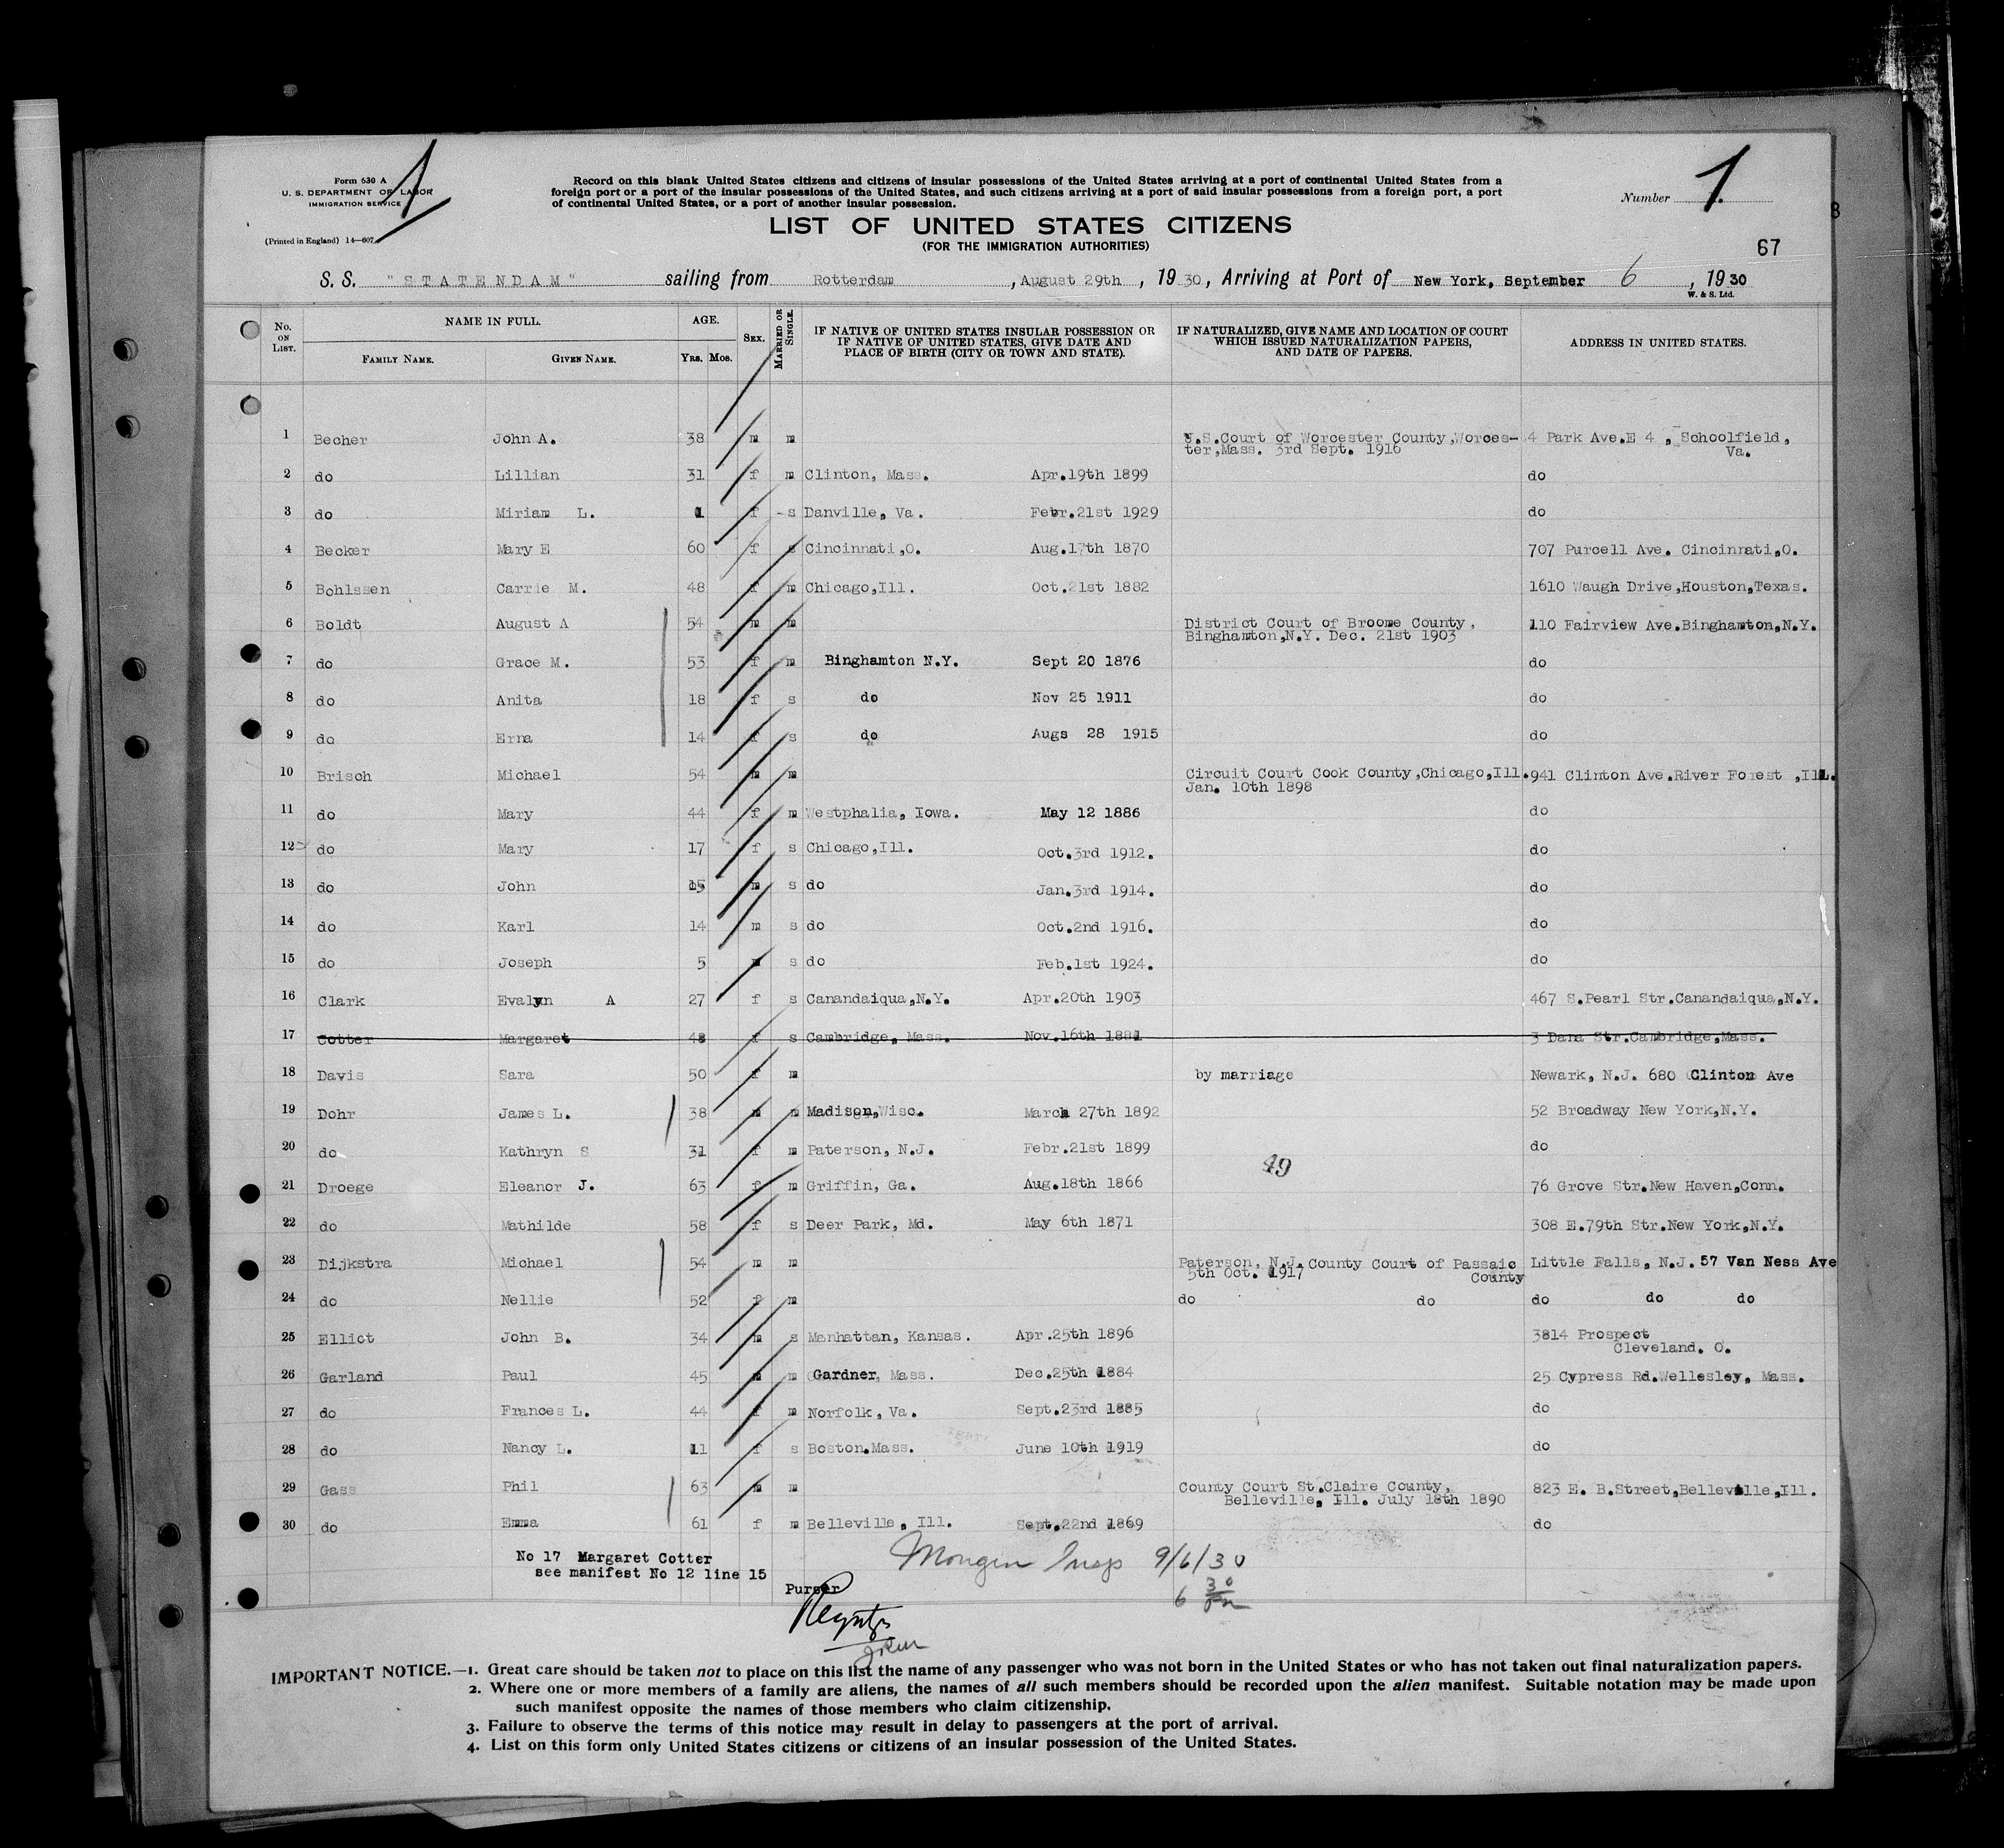 Form 630 A
U. S. DEPARTMENT OF LABOR
IMMIGRATION SERVICE
(Printed in England) 14—607
1
Record on this blank United States citizens and citizens of insular possessions of the United States arriving at a port of continental United States from a
foreign port or a port of the insular possessions of the United States, and such citizens arriving at a port of said insular possessions from a foreign port, a port
of continental United States, or a port of another insular possession.
Number 1.
LIST OF UNITED STATES CITIZENS
(FOR THE IMMIGRATION AUTHORITIES)
67
S. S. "STATENDAM" sailing from Rotterdam, August 29th, 1930, Arriving at Port of New York, September 6, 1930
W. & S. Ltd.
No. ON LIST. NAME IN FULL. FAMILY NAME. GIVEN NAME. AGE. YRS. MOS. SEX. MARRIED OR SINGLE. IF NATIVE OF UNITED STATES INSULAR POSSESSION OR IF NATIVE OF UNITED STATES, GIVE DATE AND PLACE OF BIRTH (CITY OR TOWN AND STATE). IF NATURALIZED, GIVE NAME AND LOCATION OF COURT WHICH ISSUED NATURALIZATION PAPERS, AND DATE OF PAPERS. ADDRESS IN UNITED STATES.
1 Becher John A. 38 m m .S.Court of Worcester County,Worces- 4 Park Ave.E 4 , Schoolfield,
ter,Mass. 3rd Sept. 1916 Va.
2 do Lillian 31 f m Clinton, Mass. Apr.19th 1899 do
3 do Miriam L. 1 f - s Danville, Va. Febr.21st 1929 do
4 Becker Mary E 60 f s Cincinnati,O. Aug.17th 1870 707 Purcell Ave. Cincinnati,O.
5 Bohlssen Carrie M. 48 f m Chicago,Ill. Oct.21st 1882 1610 Waugh Drive,Houston,Texas.
6 Boldt August A 54 m m District Court of Broome County, 110 Fairview Ave.Binghamton,N.Y.
Binghamton,N.Y. Dec. 21st 1903
7 do Grace M. 53 f m Binghamton N.Y. Sept 20 1876 do
8 do Anita 18 f s do Nov 25 1911 do
9 do Erna 14 f s do Augs 28 1915 do
10 Brisch Michael 54 m m Circuit Court Cook County,Chicago,Ill. 941 Clinton Ave.River Forest ,Ill.
Jan. 10th 1898
11 do Mary 44 f m Westphalia, Iowa. May 12 1886 do
12 do Mary 17 f s Chicago,Ill. Oct.3rd 1912. do
13 do John 15 m s do Jan.3rd 1914. do
14 do Karl 14 m s do Oct.2nd 1916. do
15 do Joseph 5 m s do Feb.1st 1924. do
16 Clark Evalyn A 27 f s Canandaiqua,N.Y. Apr.20th 1903 467 S.Pearl Str.Canandaiqua,N.Y.
17 Cotter Margaret 48 f s Cambridge, Mass. Nov.16th 1881 3 Dana Str.Cambridge,Mass.
18 Davis Sara 50 f m by marriage Newark, N.J. 680 Clinton Ave
19 Dohr James L. 38 m m Madison,Wisc. March 27th 1892 52 Broadway New York,N.Y.
20 do Kathryn S 31 f m Paterson, N.J. Febr.21st 1899 do
49
21 Droege Eleanor J. 63 f m Griffin, Ga. Aug.18th 1866 76 Grove Str.New Haven,Conn.
22 do Mathilde 58 f s Deer Park, Md. May 6th 1871 308 E.79th Str.New York,N.Y.
23 Dijkstra Michael 54 m m Paterson, N.J. County Court of Passaic Little Falls, N.J. 57 Van Ness Ave
5th Oct. 1917 County
24 do Nellie 52 f m do do do do do
25 Ellict John B. 34 m s Manhattan, Kansas. Apr.25th 1896 3814 Prospect
Cleveland. O.
26 Garland Paul 45 m m Gardner, Mass. Dec.25th 1884 25 Cypress Rd.Wellesley, Mass.
27 do Frances L. 44 f m Norfolk, Va. Sept.23rd 1885 do
28 do Nancy L. 11 f s Boston.Mass. June 10th 1919 do
29 Gass Phil 63 m m County Court St.Claire County, 823 E. B.Street,Belleville,Ill.
Belleville, Ill. July 18th 1890
30 do Emma 61 f m Belleville, Ill. Sept.22nd 1869 do
No 17 Margaret Cotter
see manifest No 12 line 15
Insp 9/6/30
6 30
Purser
IMPORTANT NOTICE.—1. Great care should be taken not to place on this list the name of any passenger who was not born in the United States or who has not taken out final naturalization papers.
2. Where one or more members of a family are aliens, the names of all such members should be recorded upon the alien manifest. Suitable notation may be made upon
such manifest opposite the names of those members who claim citizenship.
3. Failure to observe the terms of this notice may result in delay to passengers at the port of arrival.
4. List on this form only United States citizens or citizens of an insular possession of the United States.